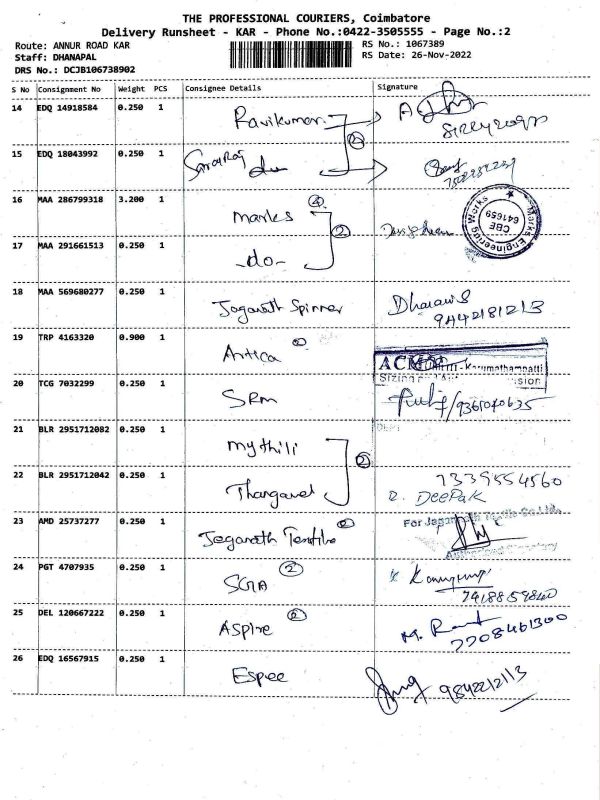 THE PROFESSIONAL COURIERS, Coimbatore
Delivery Runsheet - KAR - Phone No.:0422-3505555 - Page No.:2
Route: ANNUR ROAD KAR RS No.: 1067389
Staff: DHANAPAL RS Date: 26-Nov-2022
DRS No.: DCJB106738902
S No Consignment No Weight PCS Consignee Details Signature
14 EDQ 14918584 0.250 1 Ravikumar
15 EDQ 18043992 0.250 1 do
16 MAA 286799318 3.200 1 marks
17 MAA 291661513 0.250 1 -do- 2 Marks Engineering Works CBE 641659
18 MAA 569680277 0.250 1 Jaganath Spinner 9442181213
19 TRP 4163320 0.900 1 Antica
20 TCG 7032299 0.250 1 SRM 9361040635
21 BLR 2951712082 0.250 1 mythili 2
22 BLR 2951712042 0.250 1 Thangavel 7339554560
R. DEEPAK
23 AMD 25737277 0.250 1 Jeganath Textile For
24 PGT 4707935 0.250 1 SGA 2
25 DEL 120667222 0.250 1 ASPIre 2 7708461300
26 EDQ 16567915 0.250 1 Espee